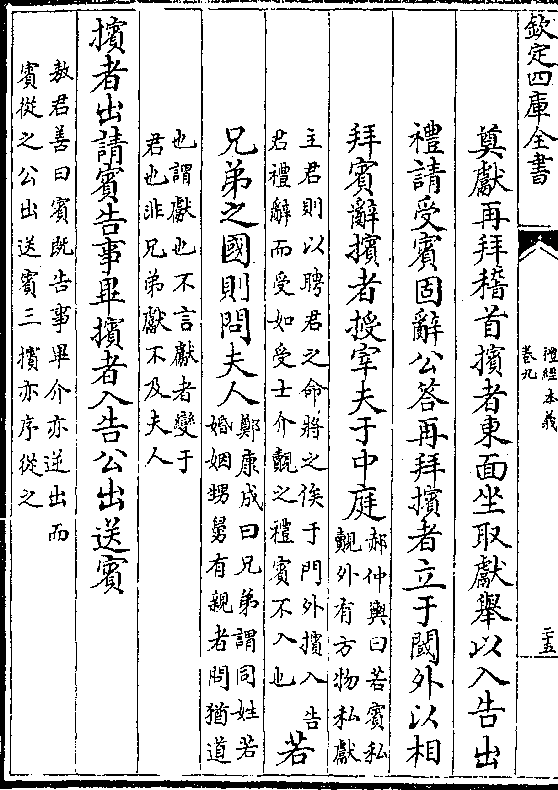 欽定四庫全書
禮經本義
卷九
二五
奠獻再拜稽首擯者東面坐取獻舉以入告出
禮請受賓固辭公答再拜擯者立于閾外以相
拜賓辭擯者授宰夫于中庭
郝仲輿曰若賓私
覿外有方物私獻
主君則以聘君之命將之俟于門外擯入告
君禮辭而受如受士介覿之禮賓不入也
若
兄弟之國則問夫人
鄭康成曰兄弟謂同姓若
婚姻甥舅有親者問猶道
也謂獻也不言獻者變于
君也非兄弟獻不及夫人
擯者出請賓告事畢擯者入告公出送賓
敖君善曰賓既告事畢介亦逆出而
賓從之公出送賓三擯亦序從之